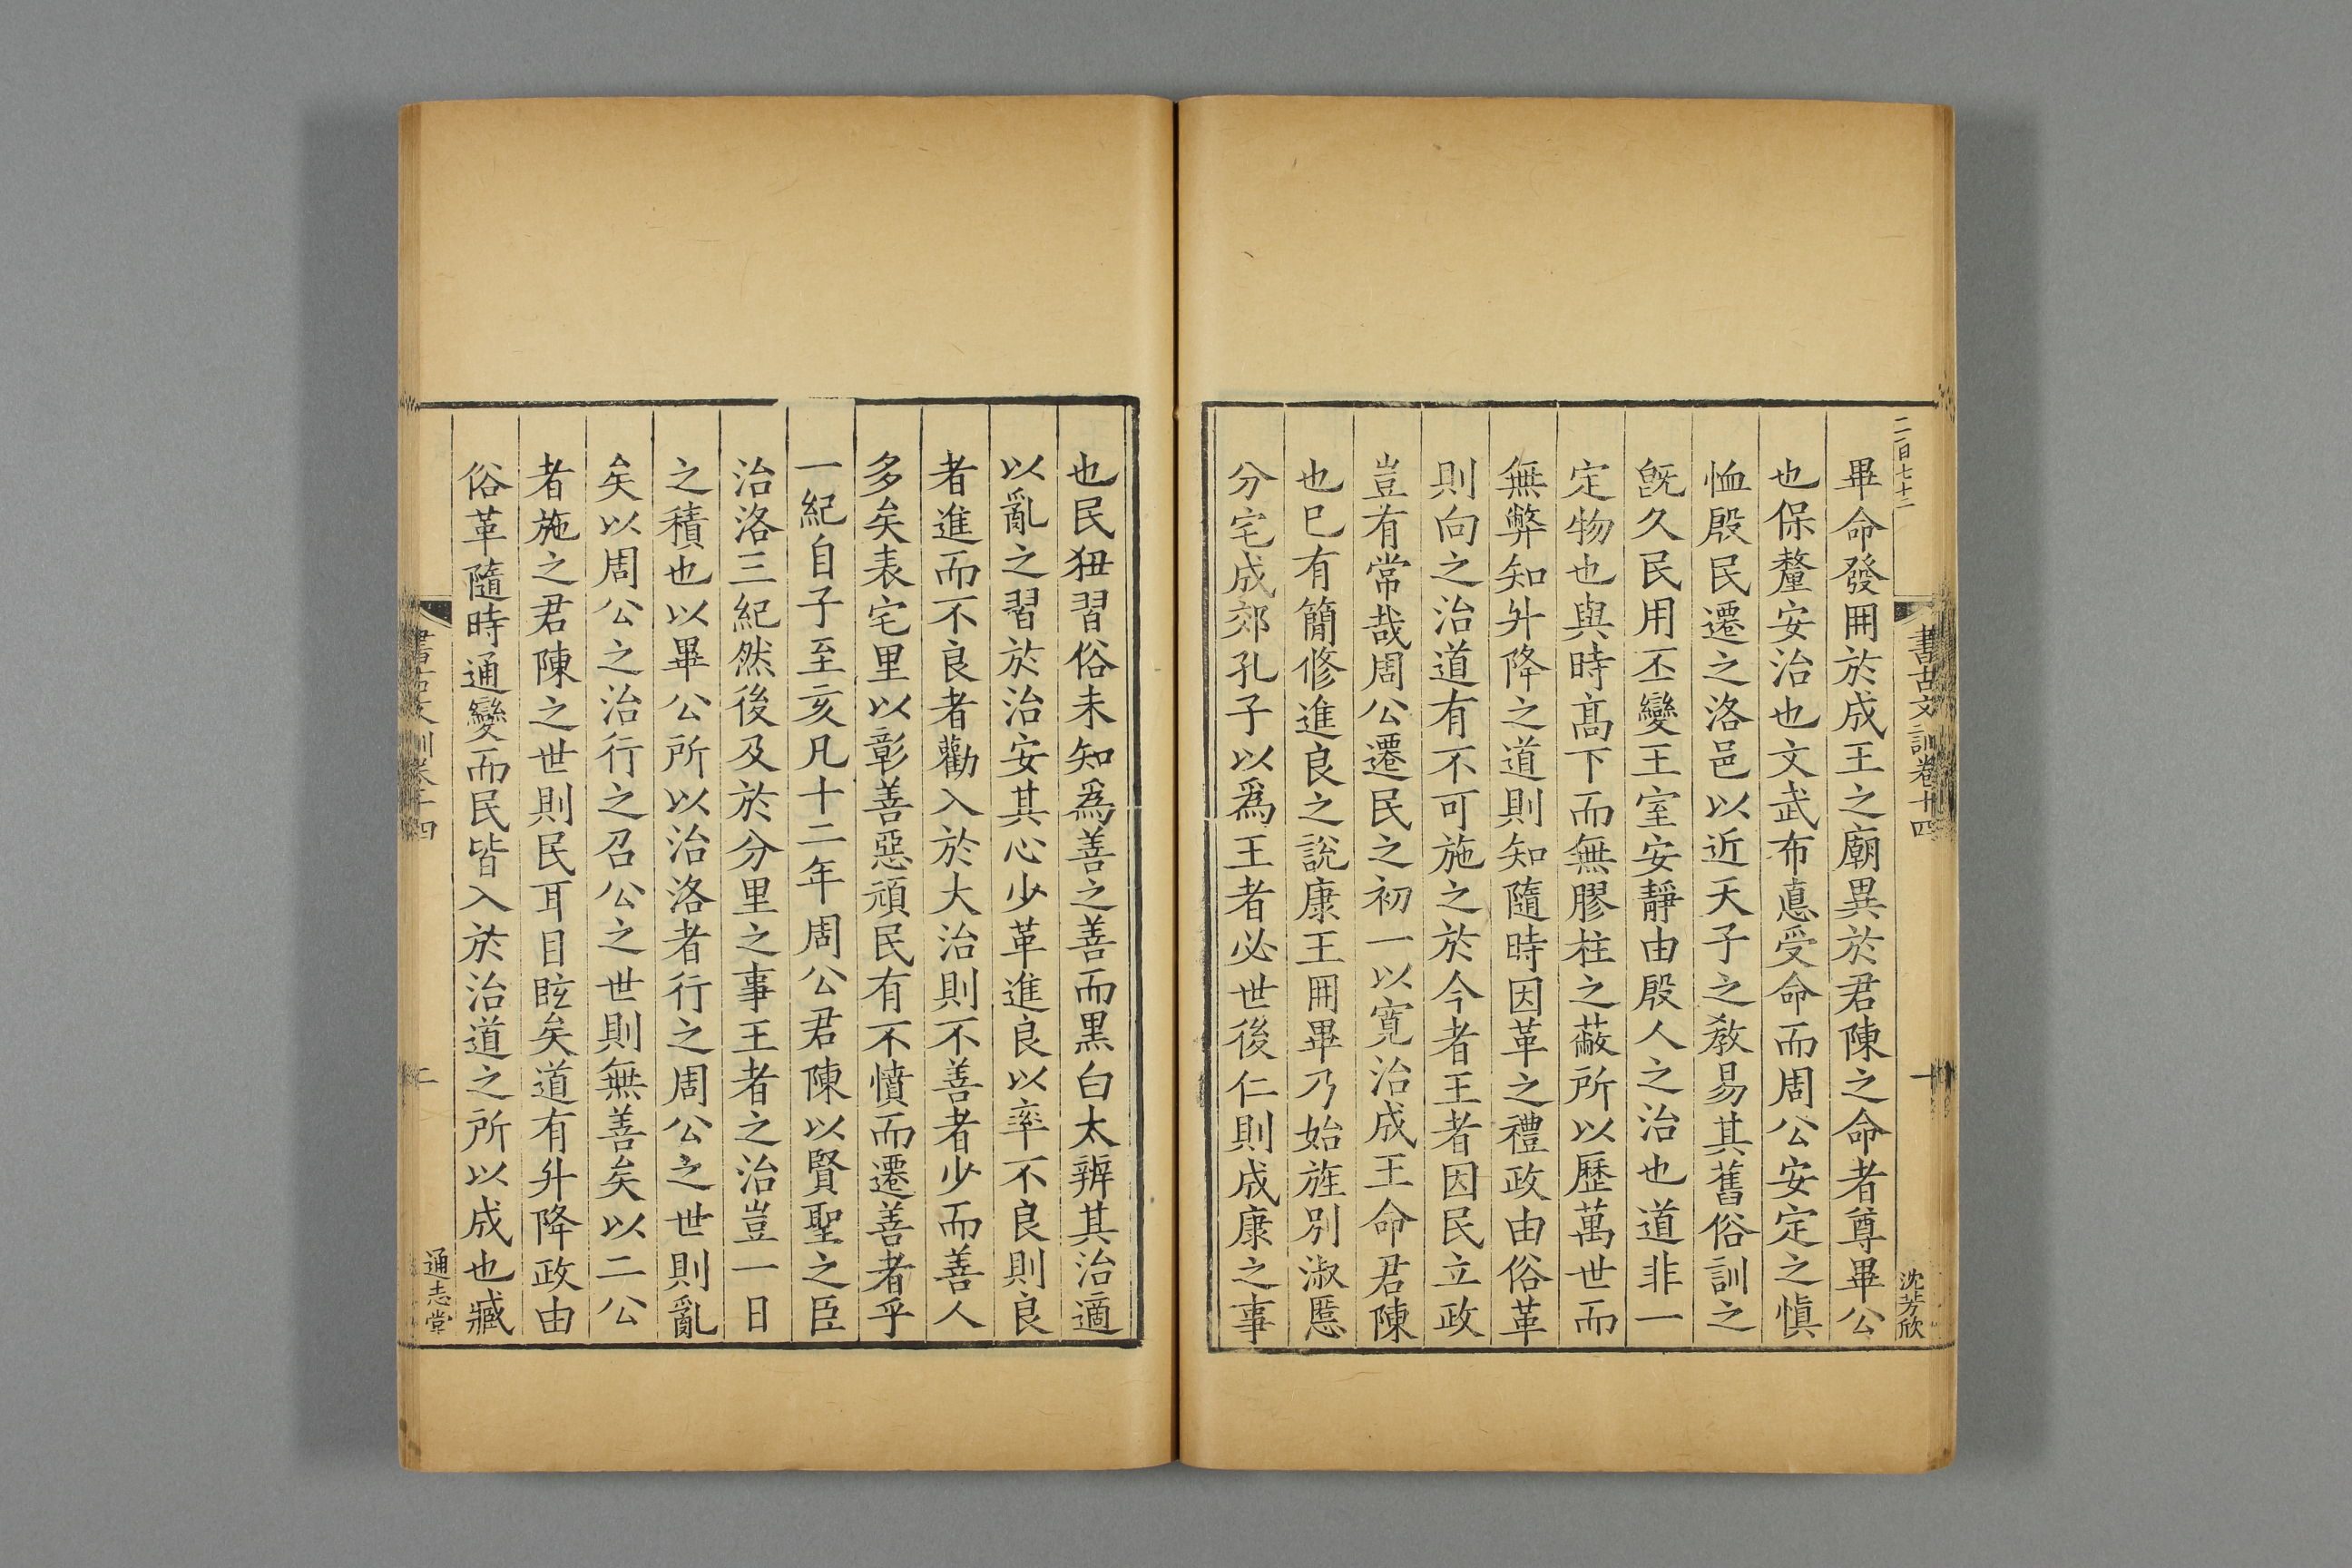 二百七十二
書古文訓卷十四
一
沈芳欣
畢命發冊於成王之廟異於君陳之命者尊畢公
也保釐安治也文武布悳受命而周公安定之慎
恤殷民遷之洛邑以近天子之教易其舊俗訓之
旣久民用丕變王室安靜由殷人之治也道非一
定物也與時髙下而無膠柱之蔽所以歷萬世而
無弊知升降之道則知隨時因革之禮政由俗革
則向之治道有不可施之於今者王者因民立政
豈有常哉周公遷民之初一以寛治成王命君陳
也巳有簡修進良之說康王冊畢乃始旌別淑慝
分宅成郊孔子以爲王者必世後仁則成康之事
也民狃習俗未知爲善之善而黒白太辨其治適
以亂之習於治安其心少革進良以率不良則良
者進而不良者勸入於大治則不善者少而善人
多矣表宅里以彰善惡頑民有不憤而遷善者乎
一紀自子至亥凡十二年周公君陳以賢聖之臣
治洛三紀然後及於分里之事王者之治豈一日
之積也以畢公所以治洛者行之周公之世則亂
矣以周公之治行之召公之世則無善矣以二公
者施之君陳之世則民耳目眩矣道有升降政由
俗革隨時通變而民皆入於治道之所以成也臧
書古文訓卷十四
二
通志堂